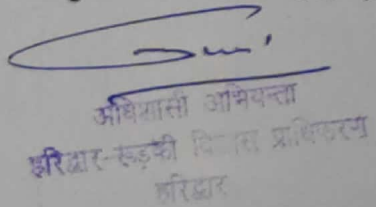 अधिशासी अभियन्ता
हरिद्वार-रूड़की विकास प्राधिकरण
हरिद्वार